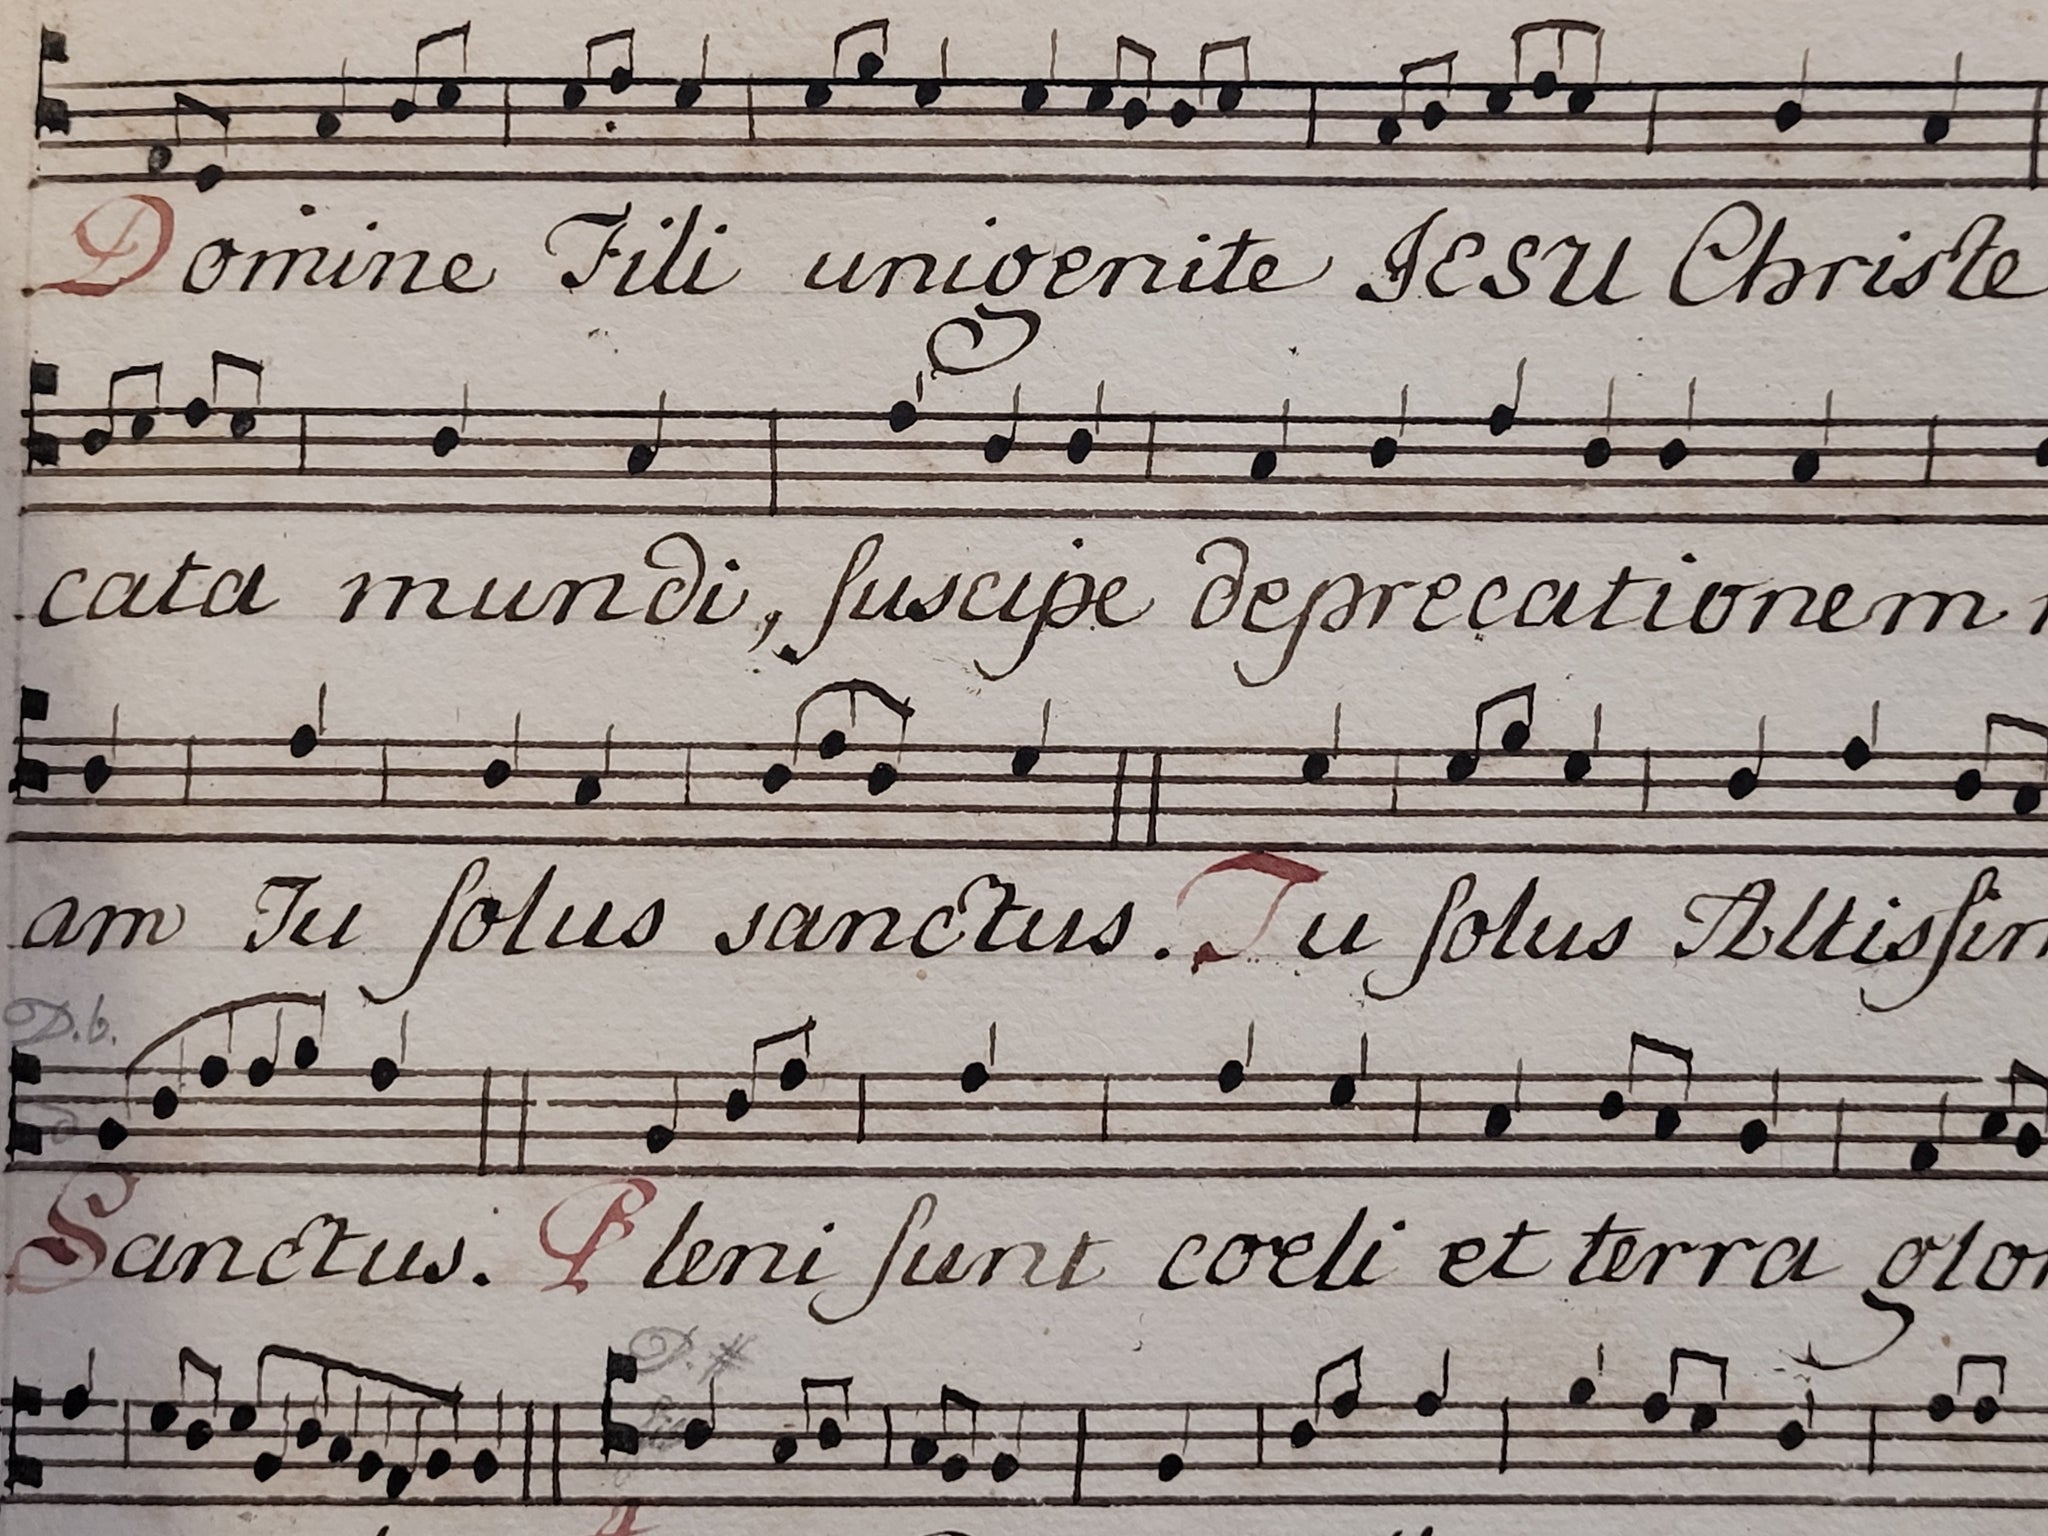 Domine Fili unigenite JESU Christe
cata mundi, ſuscipe deprecationem
am Tu ſolus sanctus. Tu ſolus Altisſim
D.b.
Sanctus. Pleni ſunt coeli et terra glor
D.#